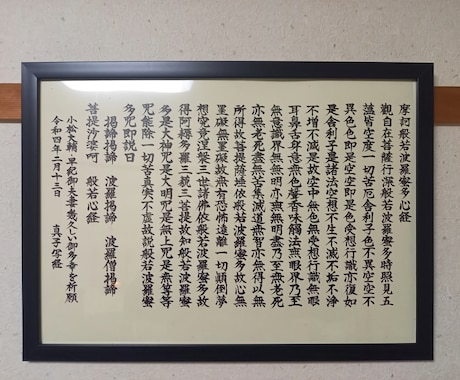 摩訶般若波羅蜜多心経
觀自在菩薩行深般若波羅蜜多時照見五
蘊皆空度一切苦厄舎利子色不異空空不
異色色即是空空即是色受想行識亦復如
是舎利子是諸法空想不生不滅不垢不浄
不増不減是故空中無色無受想行識無眼
耳鼻舌身意無色聲香味觸法無眼界乃至
無意識界無無明亦無無明盡乃至無老死
亦無老死盡無苦集滅道無智亦無得以無
所得故菩提薩埵依般若波羅蜜多故心無
罣礙無罣礙故無有恐怖遠離一切顛倒夢
想究竟涅槃三世諸佛依般若波羅蜜多故
得阿耨多羅三藐三菩提故知般若波羅蜜
多是大神咒是大明咒是無上咒是無等等
咒能除一切苦真実不虚故説般若波羅蜜
多咒即説曰
掲諦掲諦　波羅掲諦　波羅僧掲諦
菩提沙婆呵　般若心経
小松大輔・早紀御夫妻幾久しい御多幸を祈願
令和四年二月十三日　真子写経